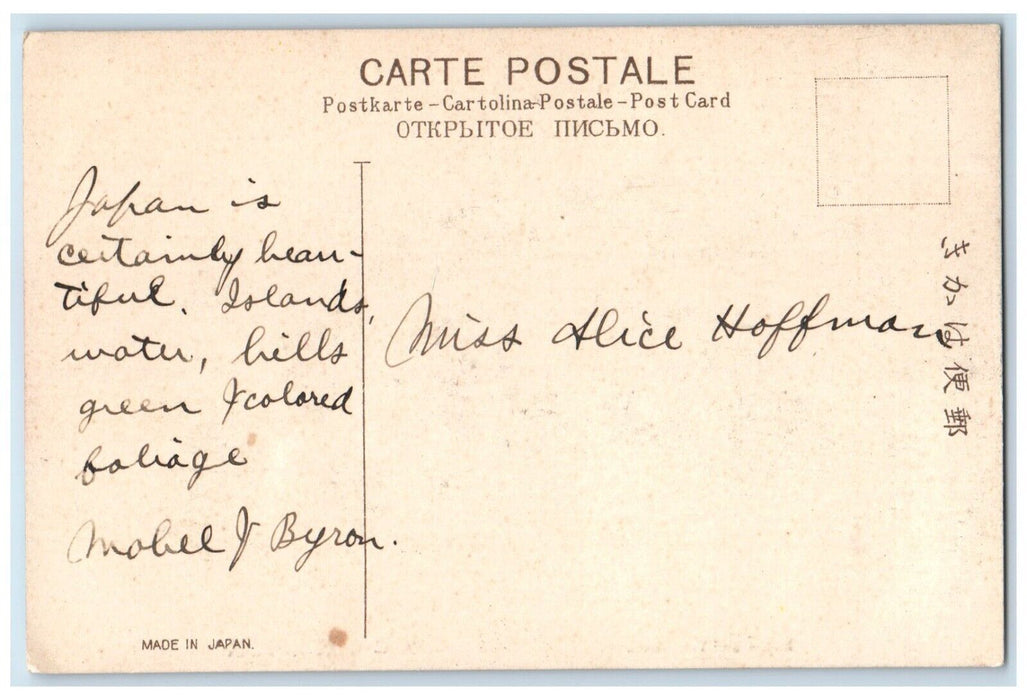 CARTE POSTALE
Postkarte - Cartolina-Postale - Post Card
ОТКРЫТОЕ ПИСЬМО.
Japan is
certainly beau-
tiful. Islands,
water, hills
green & colored
foliage
Mabel & Byron.
Miss Alice Hoffman
郵便はかき
MADE IN JAPAN.